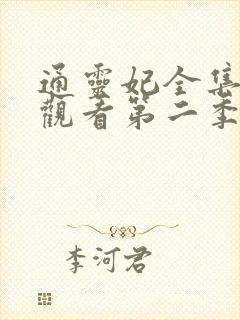 通靈妃全集
觀看第二季
李河君